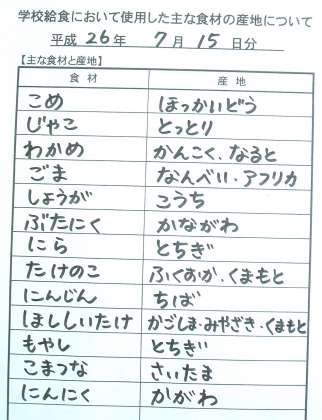 学校給食において使用した主な食材の産地について
平成 26 年 7 月 15 日分
【主な食材と産地】
食 材 産 地
こめ ほっかいどう
じゃこ とっとり
わかめ かんこく、なると
ごま なんべい・アフリカ
しょうが こうち
ぶたにく かながわ
にら とちぎ
たけのこ ふくおか、くまもと
にんじん ちば
ほししいたけ かごしま・みやざき・くまもと
もやし とちぎ
こまつな さいたま
にんにく かがわ